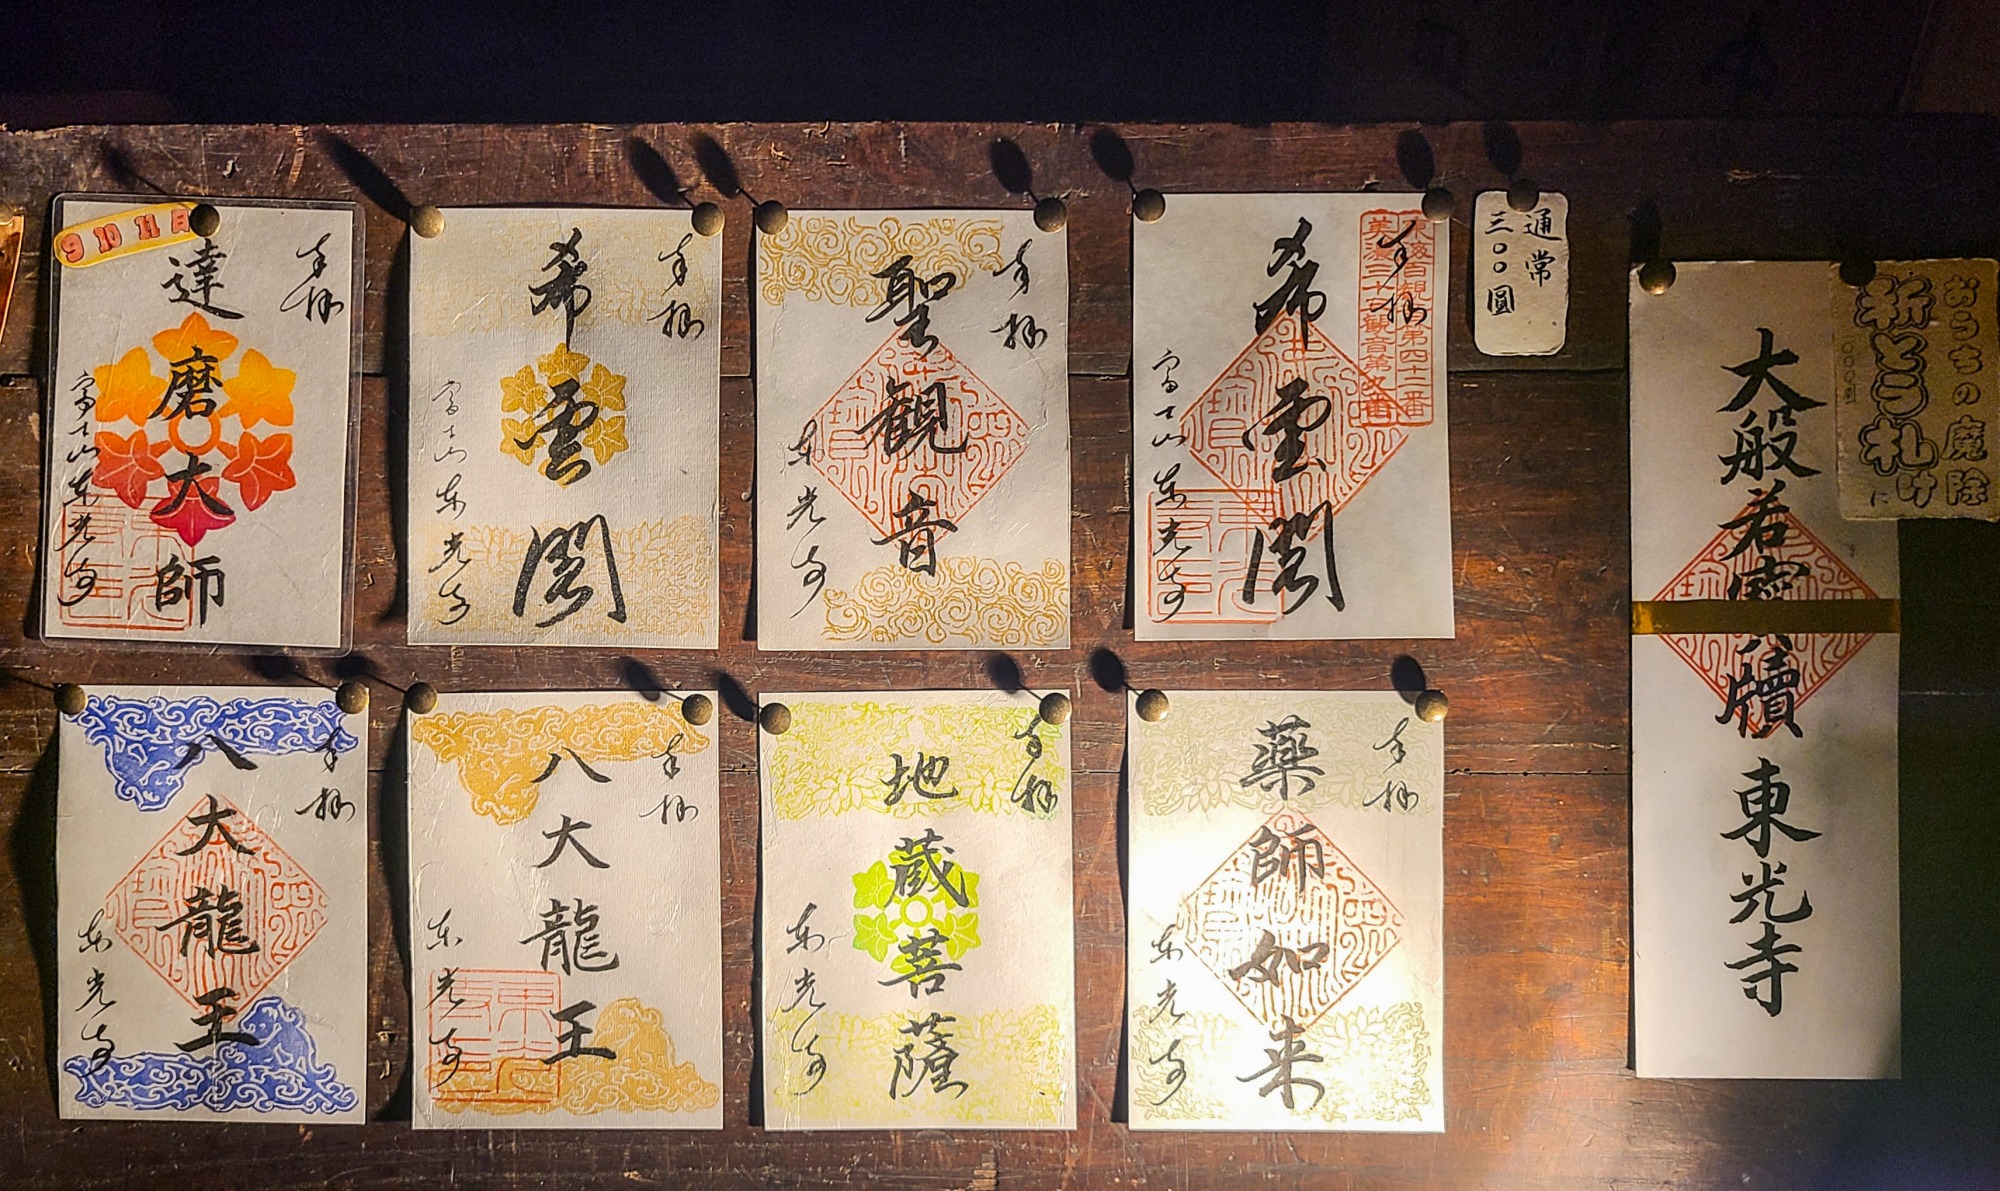 9 10 11月
奉拝
達磨大師
富士山東光寺
奉拝
希雲閣
富士山東光寺
奉拝
聖観音
東光寺
東海百観音第四十二番
美濃三十三観音第九番
奉拝
希雲閣
富士山東光寺
通常
三〇〇圓
おうちの魔除
けに
祈とう札
大般若寶牘 東光寺
奉拝
八大龍王
東光寺
奉拝
八大龍王
東光寺
奉拝
地蔵菩薩
東光寺
奉拝
薬師如来
東光寺